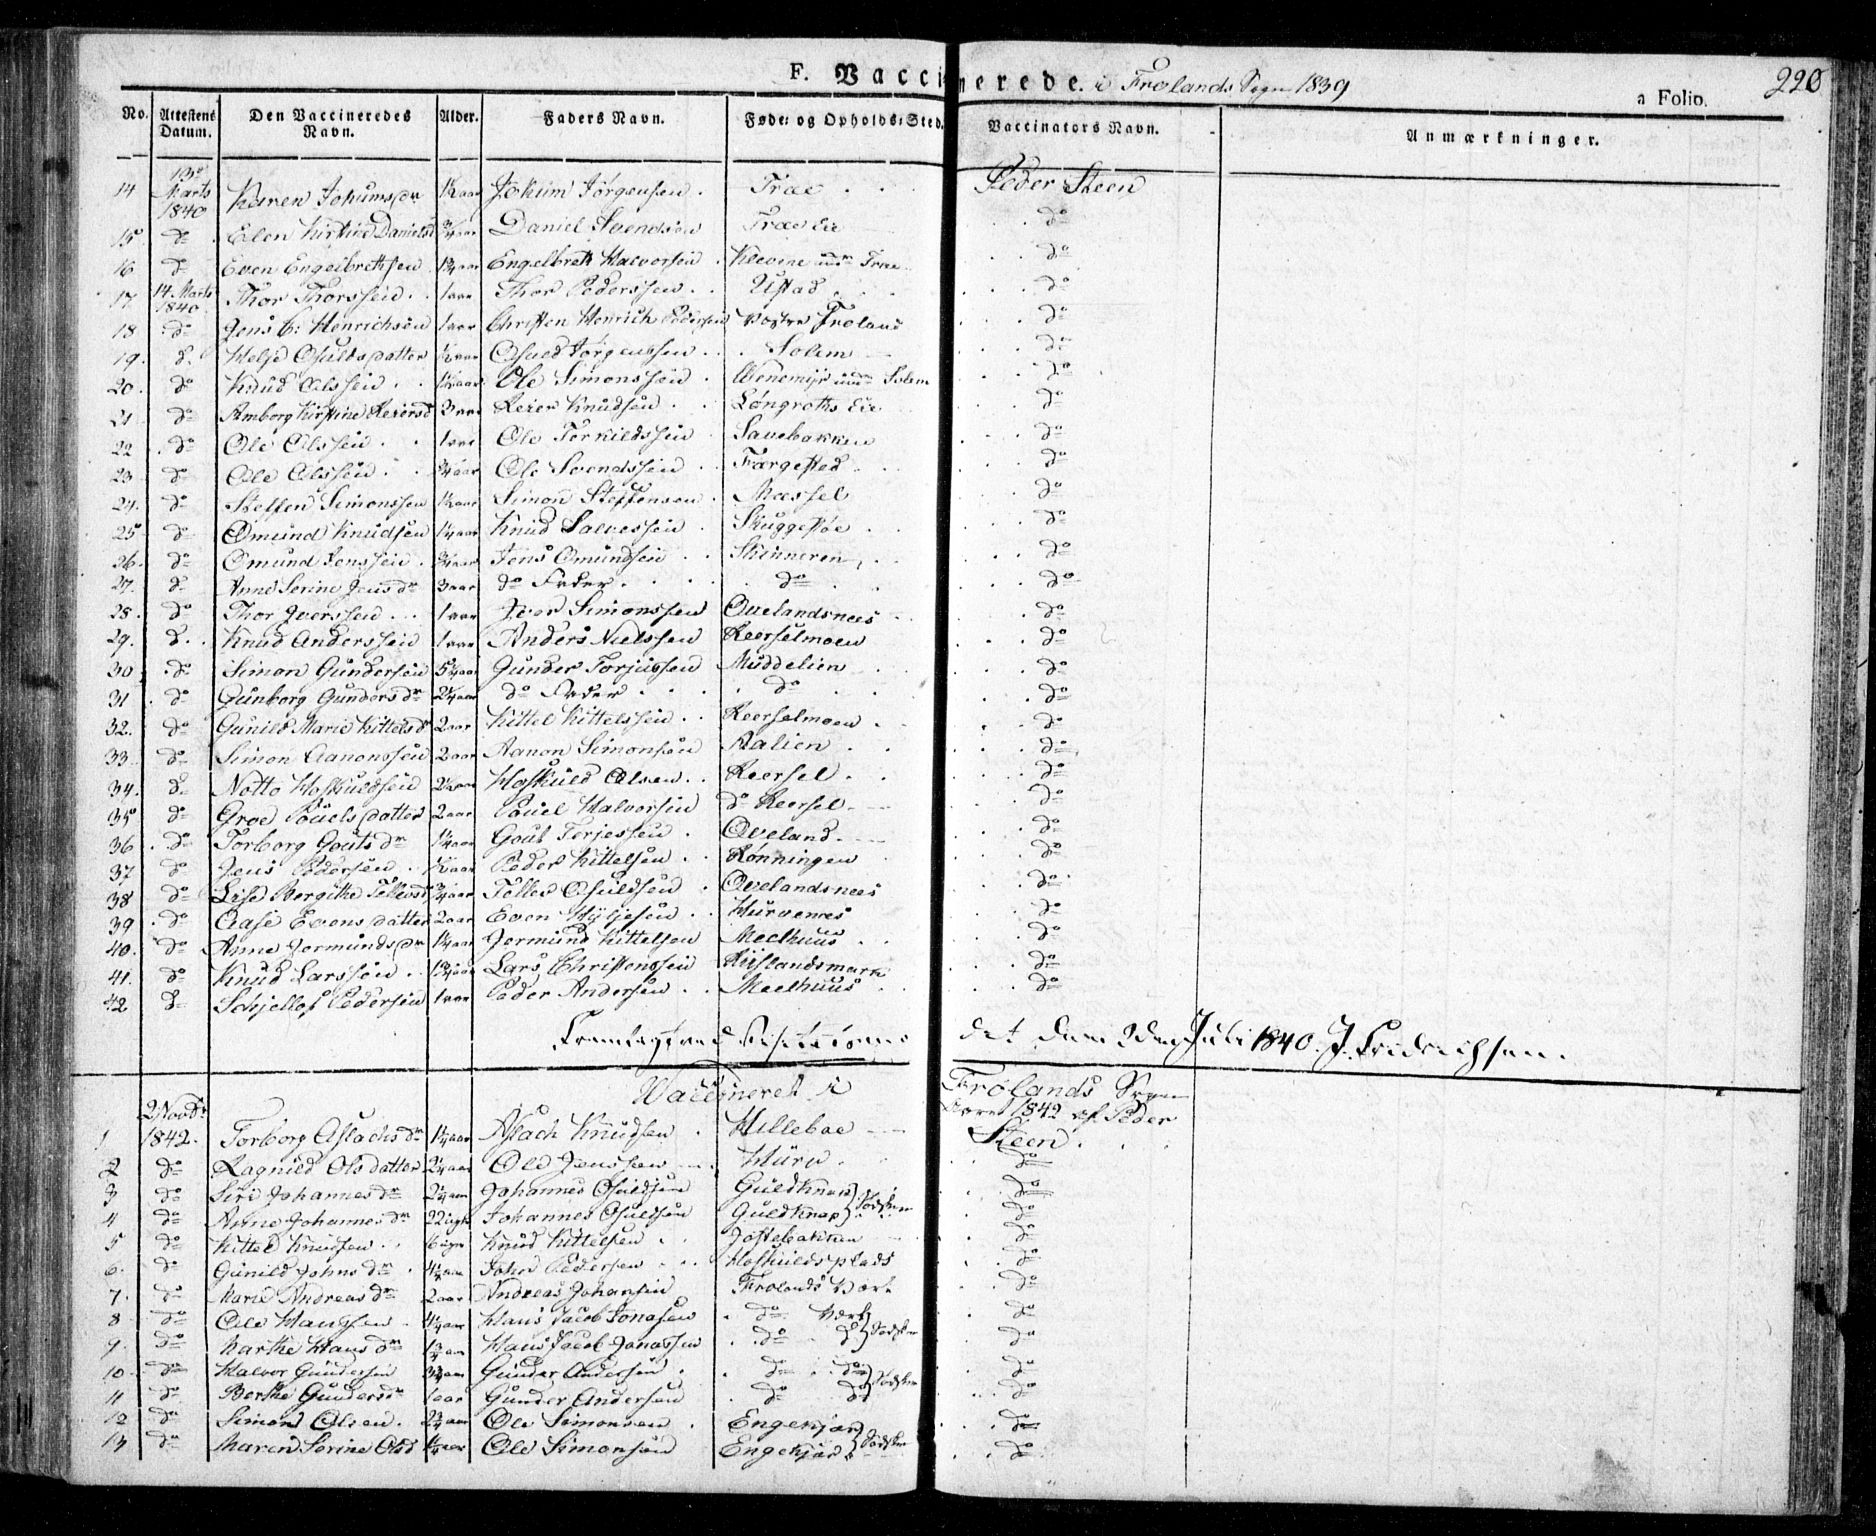 F. Vaccinerede. i Frolands Sogn 1839
a Folio. 220
No. Attestens Datum. Den Vaccineredes Navn. Alder. Faders Navn. Føde- og Opholds-Sted. Vaccinators Navn. Anmærkninger.
14 13de Marts 1840 Karen Jochumsdr 1/2 aar Jokum Jörgensen Træe Peder Steen
15 do Elen Kirstine Danielsd 3/4 aar Daniel Svendsen Træe Eie do
16 do Even Engelbrethsen 1 3/4 aar Engelbreth Halvorsen Klevene undr Træe do
17 14 Marts 1840 Thor Thorssen 1 aar Thor Pederssen Ufstad do
18 do Jens C: Henrichsen 1 aar Christen Henrich Pedersen Vestre Froland do
19 do Helje Osuldsdatter 1/2 aar Osuld Jörgenssen Solem do
20 do Knud Olssen 1 1/2 aar Ole Simonssen Wenemÿr undr Solem do
21 do Amborg Kirstine Reiersd 3 aar Reier Knudsen Löngroths Eie do
22 do Ole Olssen 1 aar Ole Terkildssen Savebakken do
23 do Ole Olssen 3/4 aar Ole Svendssen Færgestad do
24 do Steffen Simonssen 1/2 aar Simon Steffensen Messel do
25 do Omund Knudsen 1 1/4 aar Knud Salvessen Skuggestøe do
26 do Omund Jenssen 3/4 aar Jens Omundsen Skinneren do
27 do Anne Serine Jensdr 3 aar do Fader do do
28 do Thor Iverssen 1 aar Iver Simonssen Ovelandsnees do
29 do Knud Anderssen 1 aar Anders Nielssen Reerselmoen do
30 do Simon Gundersen 5 1/4 aar Gunder Torjussen Muddelien do
31 do Gunborg Gundersdr 2 1/4 aar do Fader do do
32 do Gunild Marie Kittelsdr 2 aar Kittel Kittelssen Reerselmoen do
33 do Simon Aanonssen 2 aar Aanon Simonsen Aalien do
34 do Notto Hoskuldsen 2 1/2 aar Hoskuld Olsen Reersel do
35 do Groe Pouelsdatter 2 aar Pouel Halvorsen do Reersel do
36 do Torborg Goutsdr 1 1/4 aar Gout Terjessen Oveland do
37 do Jens Pedersen 1/2 aar Peder Kittelsen Rønningen do
38 do Lise Bergithe Tellevsd 3/4 aar Tellev Osuldsen Ovelandsnees do
39 do Aase Evensdatter 2 aar Even Hÿljesen Hurvenes do
40 do Anne Jormundsdr 1 1/4 aar Jormund Kittelsen Meelhuus do
41 do Knud Larssen 1 3/4 aar Lars Christenssen Riislandsmark do
42 do Schjellof Pedersen 1 aar Peder Andersen Meelhuus do
Fremlagt ved Visitationen det den 2den Juli 1840. J. Fridrichsen.
Vaccineret i Frolands Sogn
Aaret 1842 af Peder
1 2 Novbr 1842 Torborg Aslachsdr 1 1/4 aar Aslach Knudsen Hilleboe Steen
2 do Ragnild Olsdatter 2 1/4 aar Ole Jenssen Hurv do
3 do Siri Johannesdr 2 1/4 aar Johannes Osuldsen Guldknap do
4 do Anne Johannesdr 22 uger Johannes Osuldsen Guldknap } Sødsken do
5 do Kittel Knudsen 6 uger Knud Kittelsen Jostebakken do
6 do Gunild Johnsdr 4 1/2 aar John Pedersen Hoskuldsplads do
7 do Marie Andreasdr 2 aar Andreas Johansen Frolands Værk do
8 do Ole Hanssen 4 1/4 aar Hans Jacob Jonasen do Værk do
9 do Marthe Hansdr 1 3/4 aar Hans Jacob Jonassen do do } Sødsken do
10 do Halvor Gundersen 3 3/4 aar Gunder Andersen do do do
11 do Berthe Gundersdr 1 aar Gunder Andersen do do } Sødsken do
12 do Simon Olsen 2 3/4 aar Ole Simonsen Engekjær do
13 do Maren Serine Olsd 1/4 aar Ole Simonsen Engekjær } Sødsken do